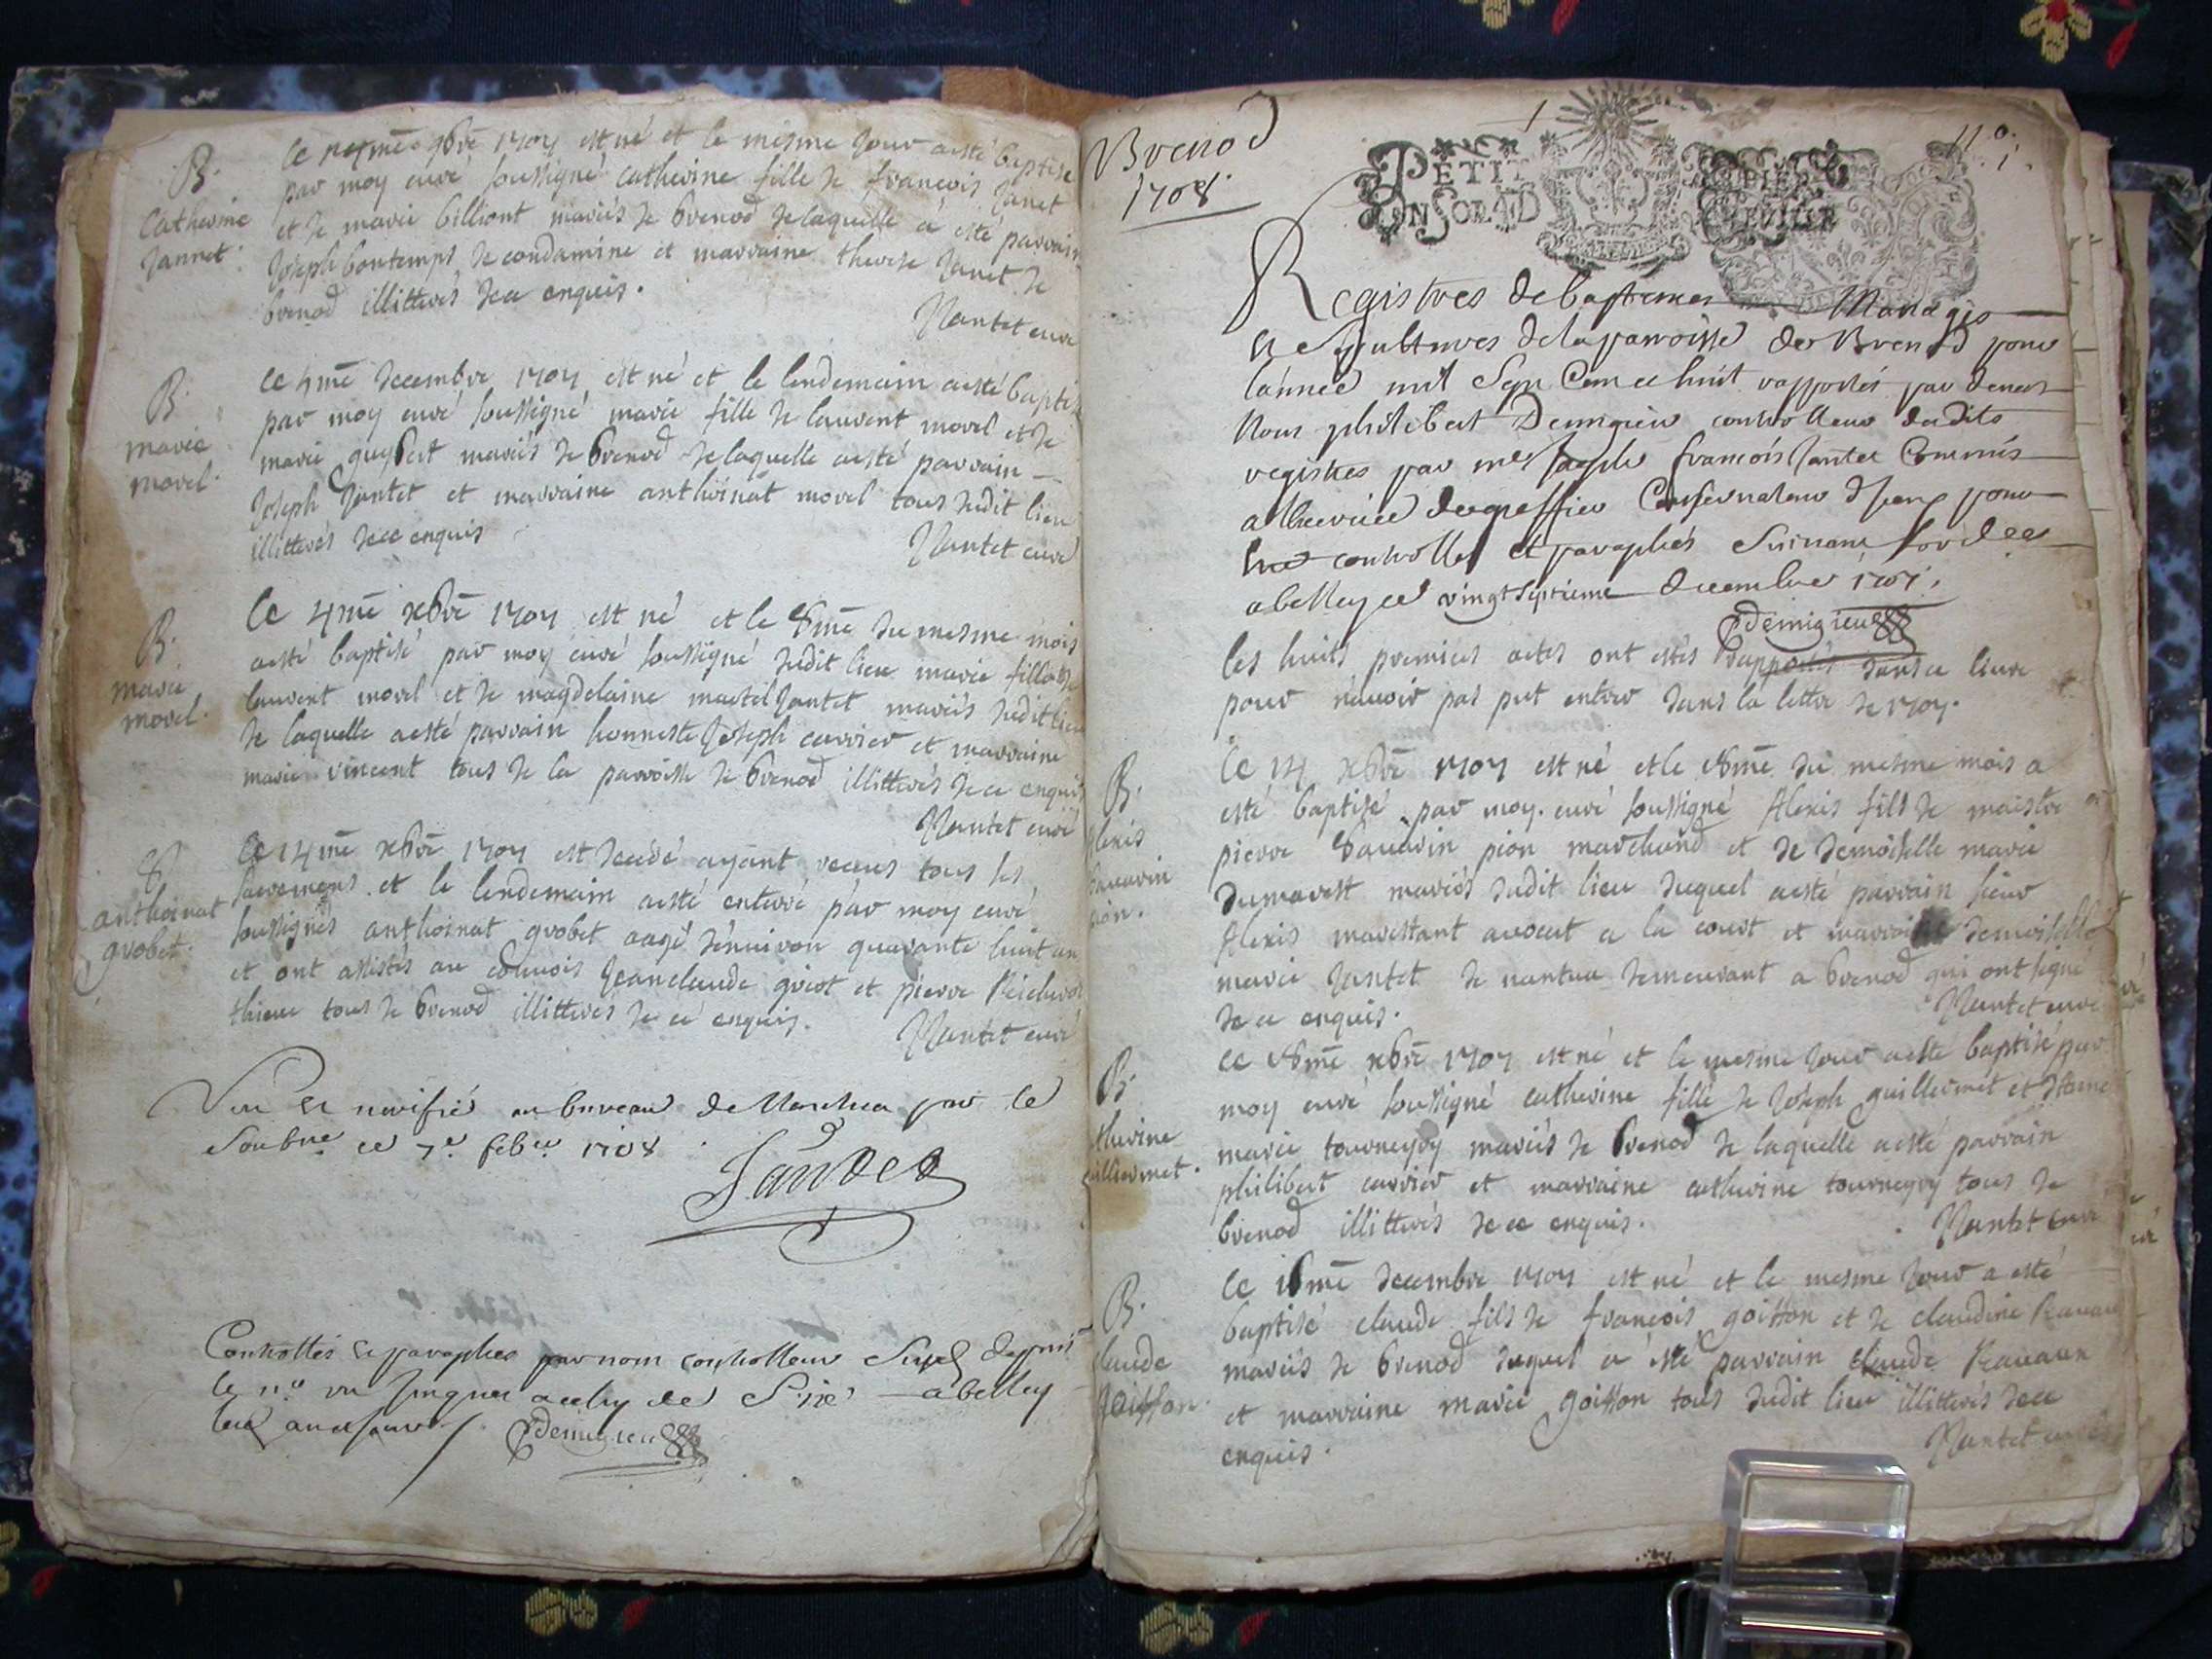 B.
Catherine
Jannet.
9bre 1707 est né et le mesme Jour aesté baptisé
par moy curé soussigné catherine fille de francois Janet
et de marie billiont mariés de brenod de laquelle a esté parrain
Joseph bontemps de condamine et marraine therese Janet de
brenod illitterés de ce enquis.
Jantet curé
B.
marie
morel.
Ce 4me decembre 1707 est né et le lendemain aesté baptisé
par moy curé soussigné marie fille de laurent morel et de
marie guybert mariés de brenod de laquelle aesté parrain
Joseph Jantet et marraine anthoinat morel tous dudit lieu
illitterés de ce enquis
Jantet curé
B.
marie
morel.
Ce 4me xbre 1707 est né et le 8me du mesme mois
aesté baptisé par moy curé soussigné dudit lieu marie fille de
laurent morel et de magdelaine martel Jantet mariés dudit lieu
de laquelle aesté parrain honneste Joseph carrier et marraine
marie vincent tous de la parroisse de brenod illitterés de ce enquis
Jantet curé
S.
anthoinat
grobet.
Ce 14me xbre 1707 est decedé ayant receus tous les
sacremens et le lendemain aesté enterré par moy curé
soussignés anthoinat grobet aagé d'enuiron quarante huit an
et ont assistés au conuois Jeanclaude griot et pierre
tous de brenod illitterés de ce enquis.
Jantet curé
Veu et verifié au bureau de Nantua par le
Soubne ce 7e feber 1708
Jantet
Controllés et paraphes par nous controlleur depuis
le no un Jusques a celuy de Six a belley
les an et Jour
Demigieu
Brenod
1708.
1
PETIT
PAPIER
UN SOL
Registres de baptemes Mariages
et Sepultures de la parroisse de Brenod pour
lannée mil Sept Cent et huit rapportés par deuant
Nous philibert Demigieu controlleur desdits
registres par me Joseph francois Jantet Commis
a lexercice de greffier Conseruateur d'Iceux pour
controllés et paraphés Suiuant
a belley ce vingt Septieme decembre 1707.
Demigieu
les huits premiers actes ont estés rapportés dans ce liure
pour n'auoir pas put entrer dans la lettre de 1707.
B.
Alexis
Sauarin
pion.
Ce 14 xbre 1707 est né et le 18me du mesme mois a
esté baptisé par moy curé soussigné Alexis fils de maistre
pierre Sauarin pion marchand et de demoiselle marie
dumarest mariés dudit lieu duquel aesté parrain sieur
Alexis marestant auocat a la court et marraine demoiselle
marie Jantet de nantua demeurant a brenod qui ont signé
de ce enquis.
Jantet curé
B.
catherine
guillermet.
Ce 18me xbre 1707 est né et le mesme Jour aesté baptisé par
moy curé soussigné catherine fille de Joseph guillermet et d'anne
marie tourneyry mariés de brenod de laquelle aesté parrain
philibert carrier et marraine catherine tourneyry tous de
brenod illitterés de ce enquis.
Jantet curé
B.
claude
goiffon.
Ce decembre 1707 est né et le mesme Jour a esté
baptisé claude fils de francois goiffon et de claudine Rauaux
mariés de brenod duquel a esté parrain claude Rauaux
et marraine marie goiffon tous dudit lieu illitterés de ce
enquis.
Jantet curé